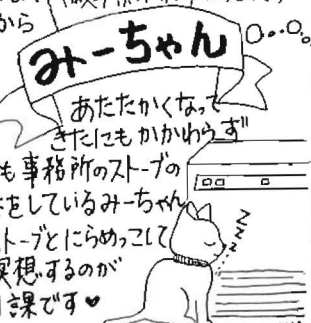 から
みーちゃん
あたたかくなって
きたにもかかわらず
も事務所のストーブの
をしているみーちゃん
トーブとにらめっこして
瞑想するのが
課です♥
zzzz